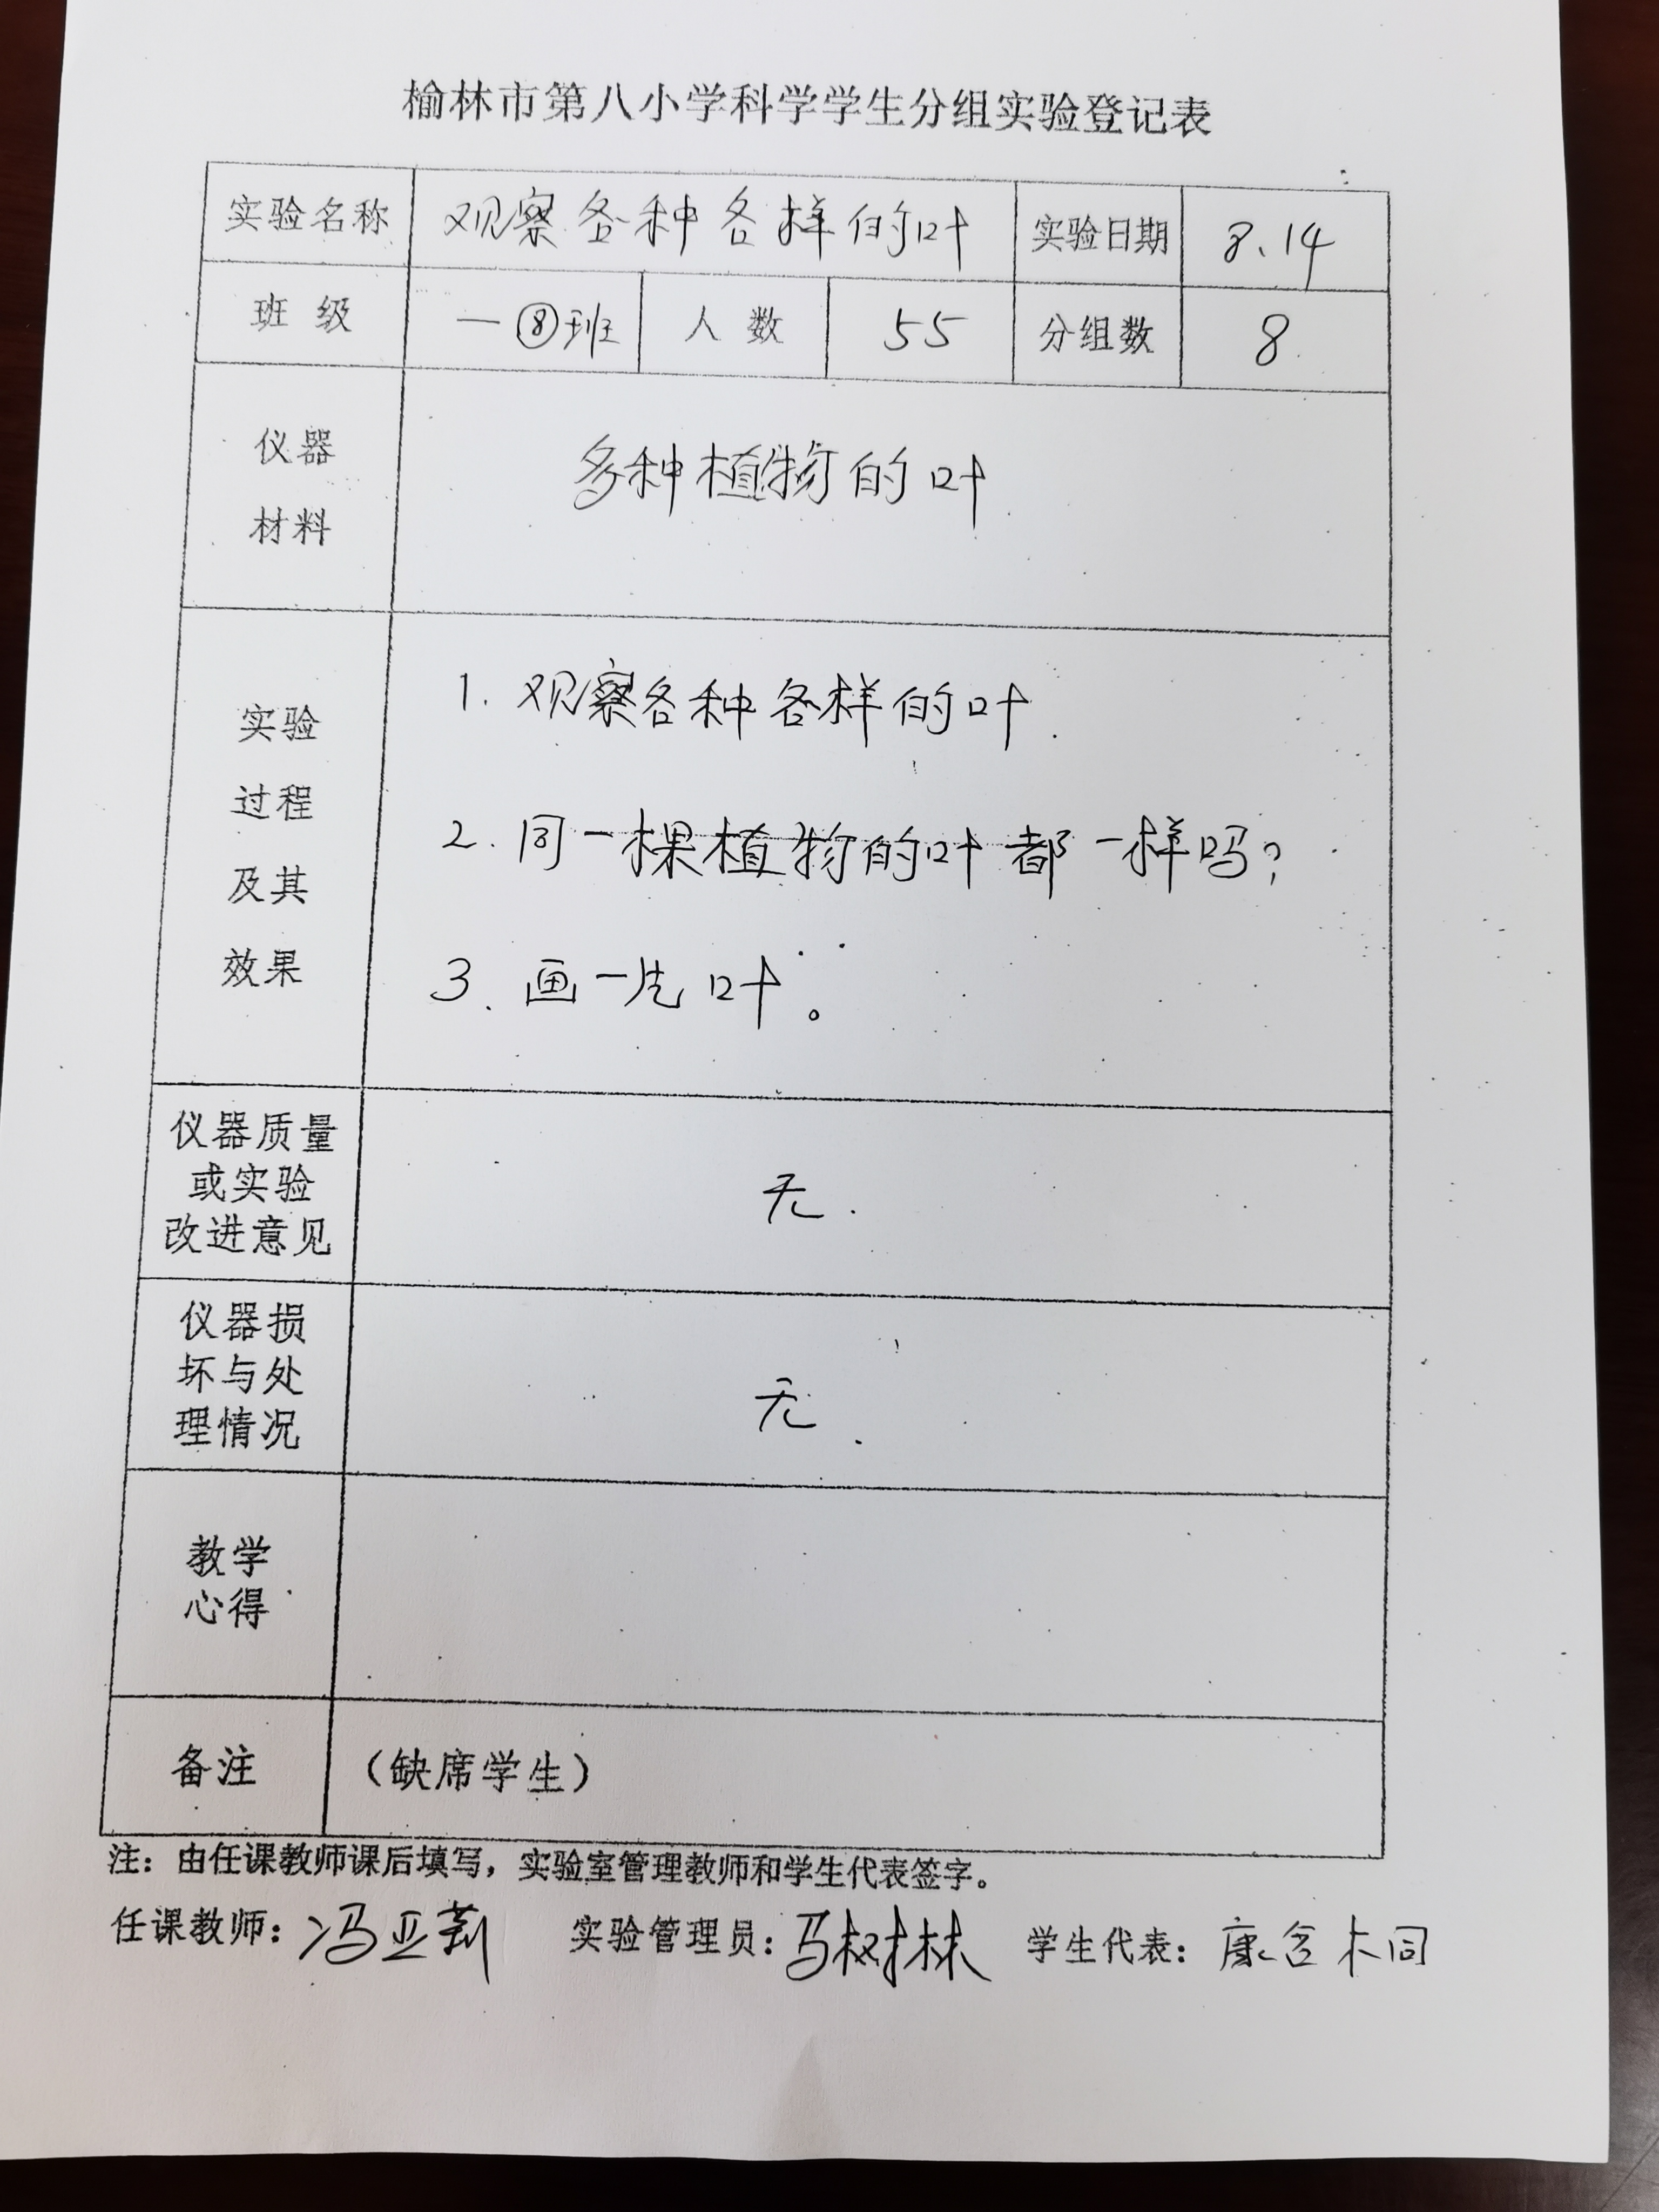 榆林市第八小学科学学生分组实验登记表
实验名称 观察各种各样的叶 实验日期 8.14
班 级 一⑧班 人 数 55 分组数 8
仪器
材料
多种植物的叶
实验
过程
及其
效果
1. 观察各种各样的叶.
2. 同一棵植物的叶都一样吗?
3. 画一片叶。
仪器质量
或实验
改进意见
无.
仪器损
坏与处
理情况
无.
教学
心得
备注 （缺席学生）
注：由任课教师课后填写，实验室管理教师和学生代表签字。
任课教师：冯亚莉 实验管理员：马树林 学生代表：康含桐